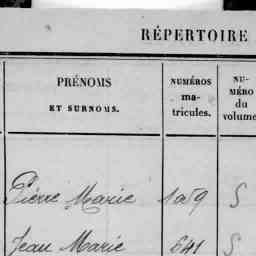 RÉPERTOIRE
PRÉNOMS
ET SURNOMS.
NUMÉROS
ma-
tricules.
NU-
MÉRO
du
volume
Pierre Marie 1059 5
Jean Marie 541 5